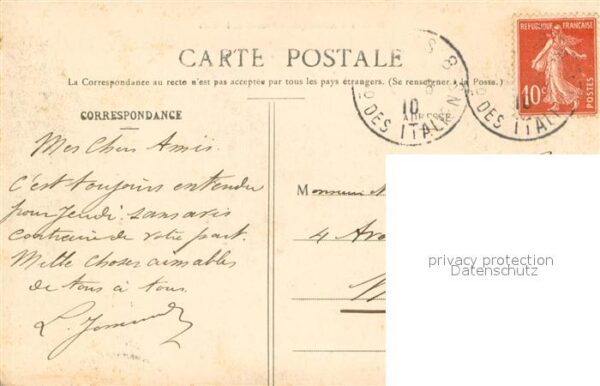 CARTE POSTALE
La Correspondance au recto n'est pas acceptée par tous les pays étrangers. (Se renseigner à la Poste.)
RÉPUBLIQUE FRANÇAISE
10c
POSTES
10
DES ITALIENS
10
DES ITALIENS
CORRESPONDANCE
ADRESSE
Mes Chers Amis.
C'est toujours entendu
pour Jeudi. sans avis
contraire de votre part.
Mille choses aimables
de tous à tous
Monsieur
4
privacy protection
Datenschutz